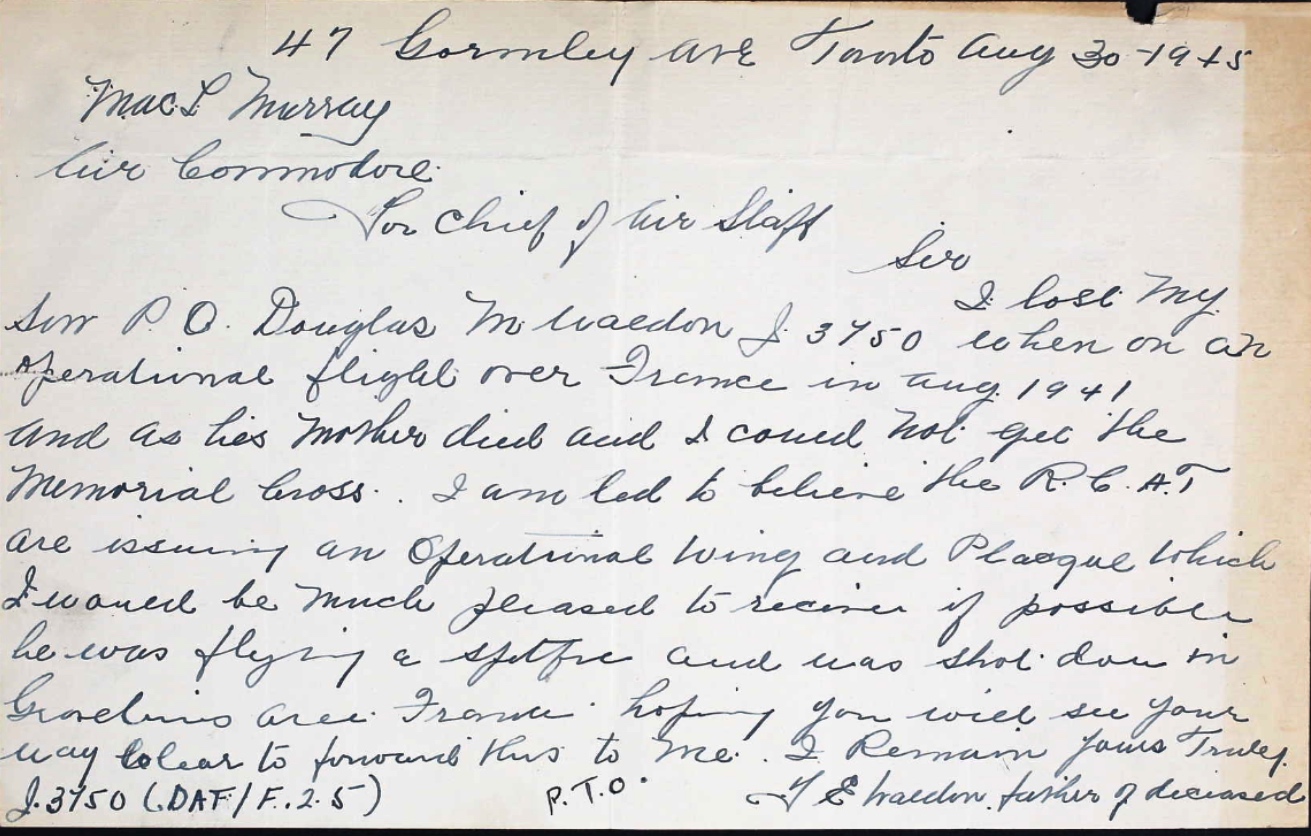 47 Gormley Ave Toronto Aug 30-1945
Mac L Murray
Air Commodore
For Chief of Air Staff
Sir
I lost My
Son P. O. Douglas M Waldon J 3750 when on an
operational flight over France in Aug. 1941
and as his Mother died and I could Not get the
Memorial Cross.. I am led to believe the R.C.A.F
are issuing an Operational Wing and Plaque which
I would be Much pleased to receive if possible
he was flying a spitfire and was shot down in
Gravelines area France hoping you will see your
way clear to forward this to Me. I Remain yours Truly
J.3750 (.DAF/F.2.5)
P.T.O.
T E Waldon father of deceased